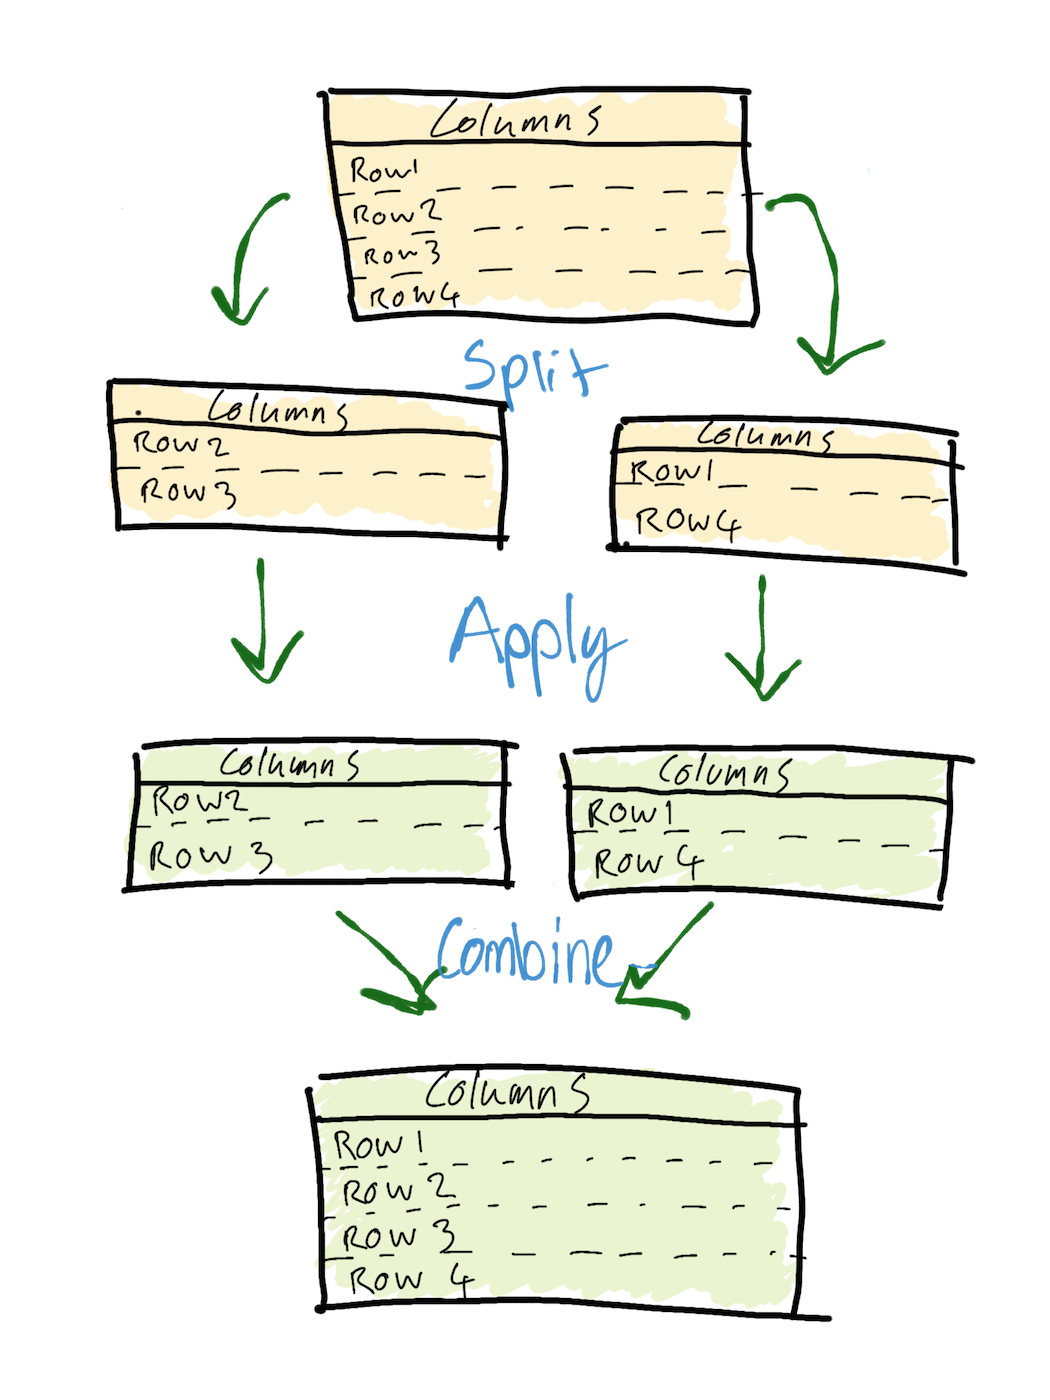 Columns
Row1
Row2
Row3
Row4
Split
Columns
Row2
Row3
Columns
Row1
Row4
Apply
Columns
Row2
Row 3
Columns
Row1
Row 4
Combine
Columns
Row 1
Row 2
Row 3
Row 4